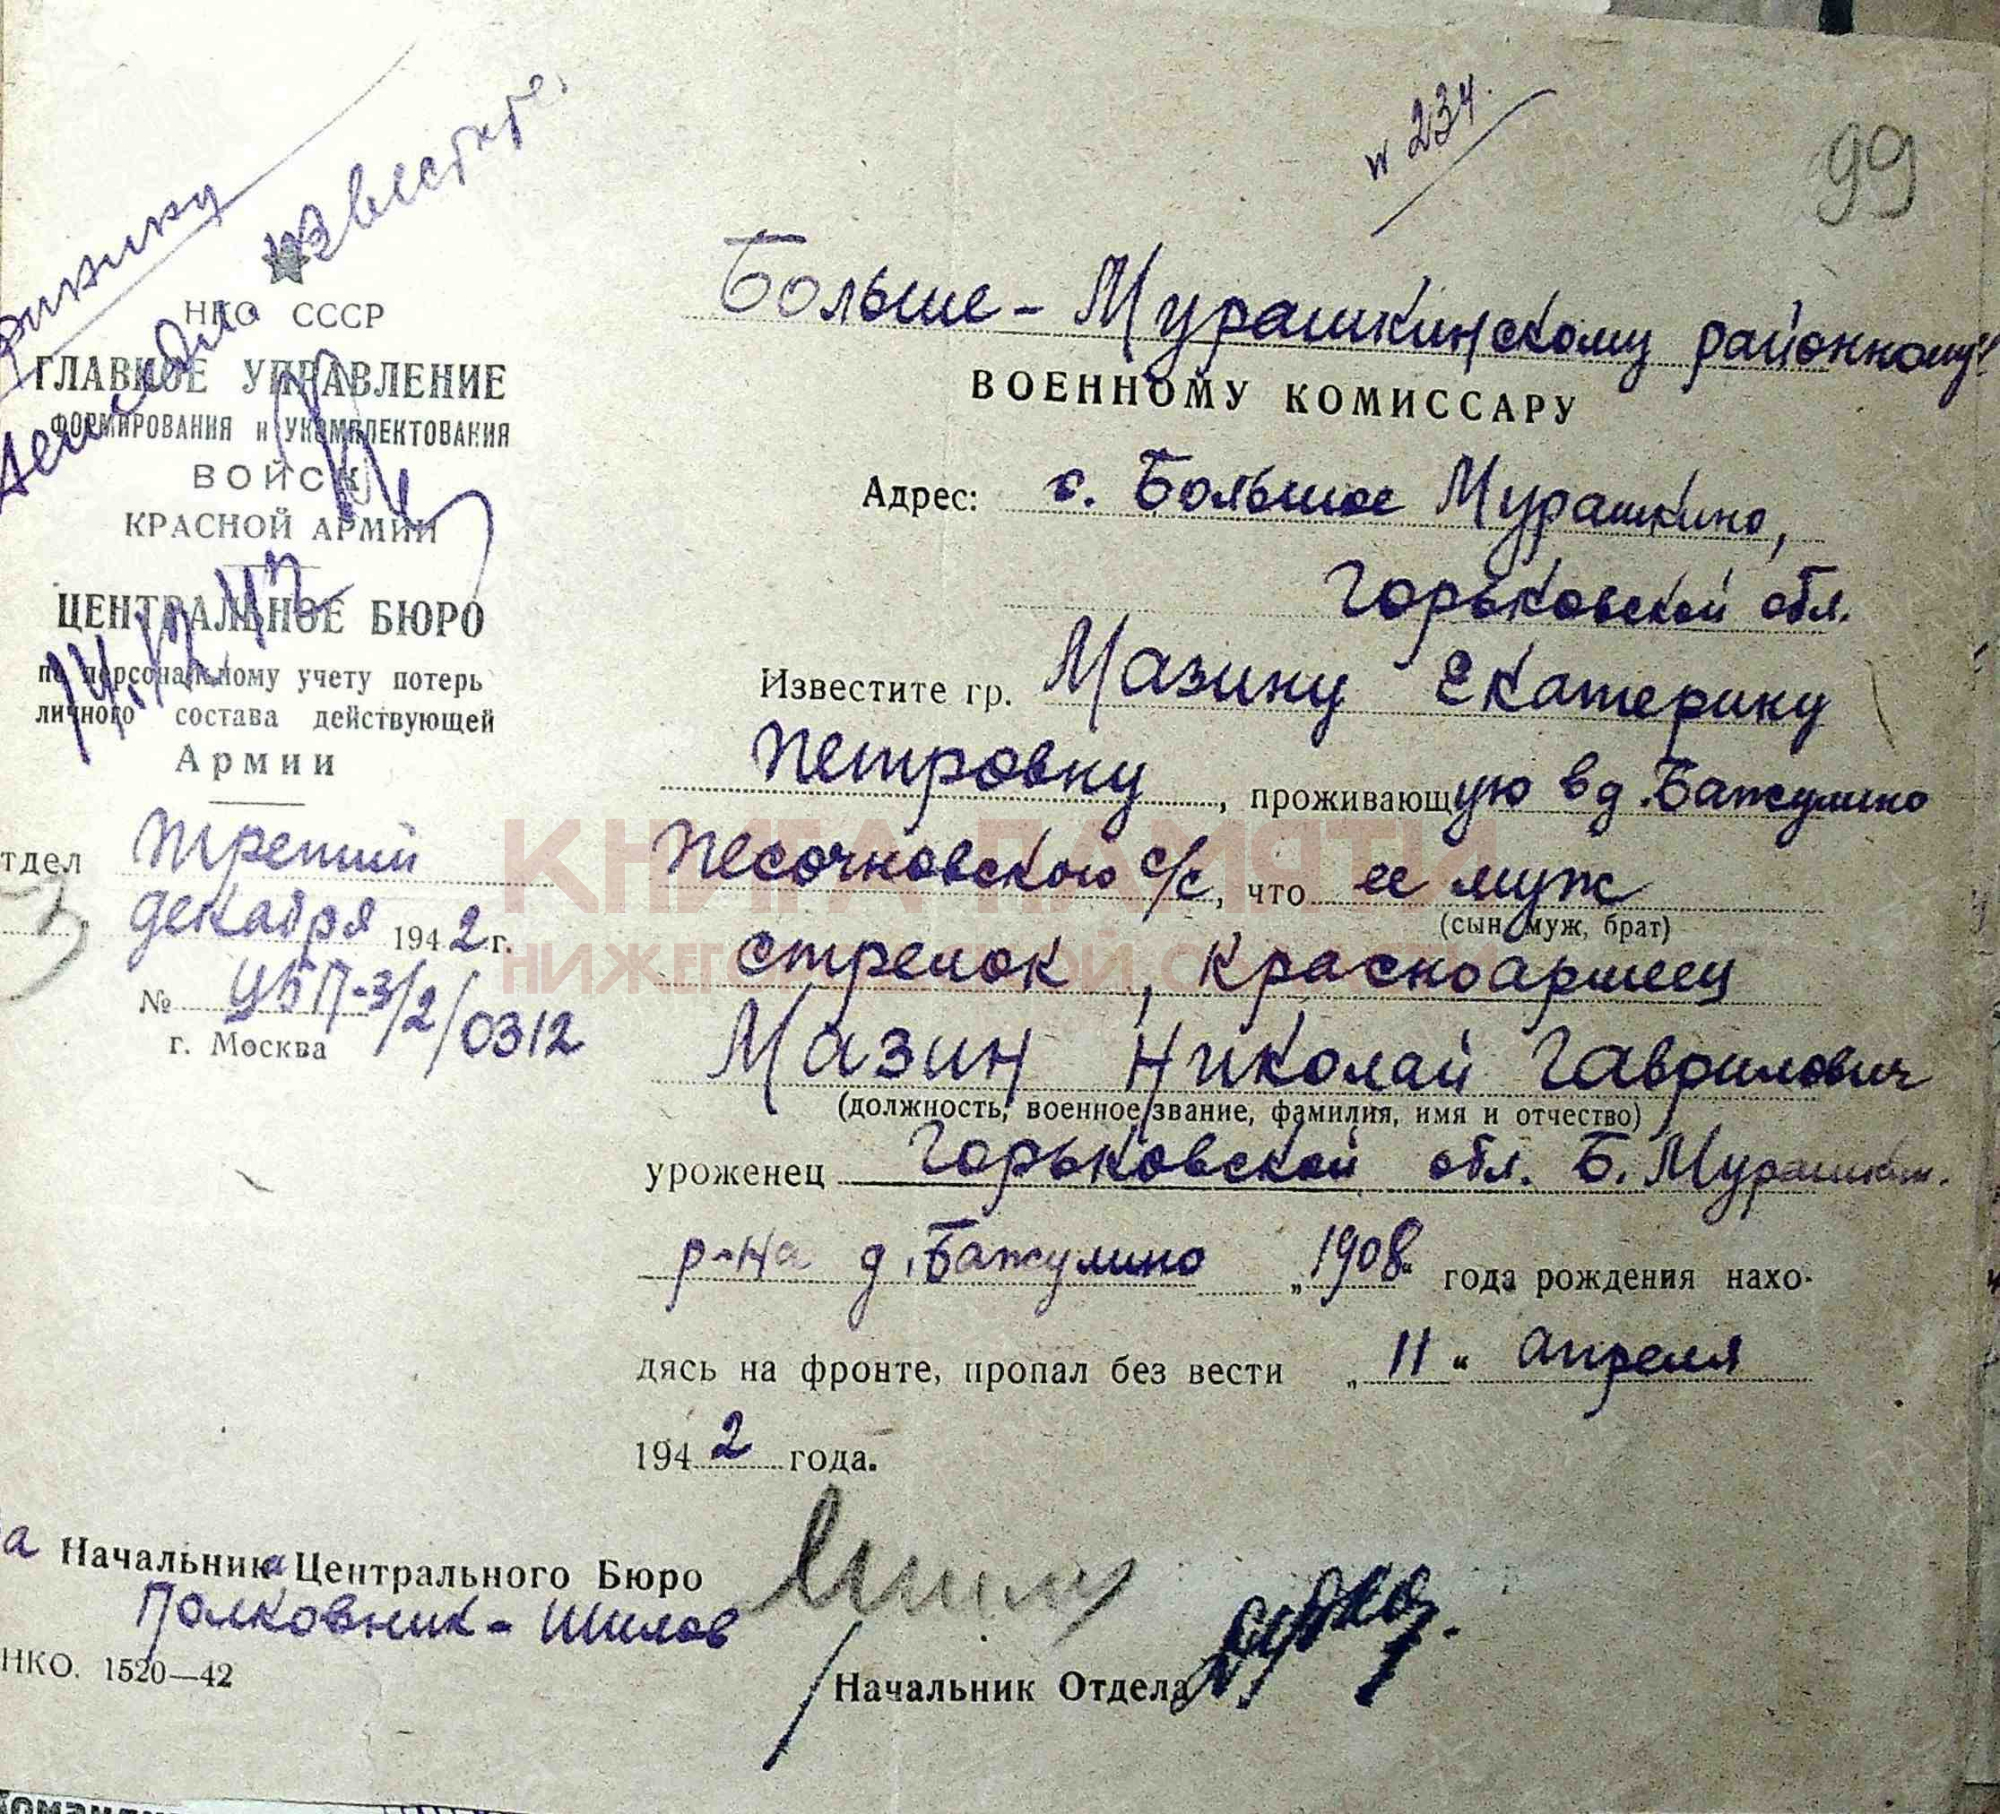 № 234.
99
известите.
НКО СССР
ГЛАВНОЕ УПРАВЛЕНИЕ
ФОРМИРОВАНИЯ и УКОМПЛЕКТОВАНИЯ
ВОЙСК
КРАСНОЙ АРМИИ
ЦЕНТРАЛЬНОЕ БЮРО
по персональному учету потерь
личного состава действующей
Армии
14.12.42
тдел третий
декабря 1942 г.
№ ЦБП-3/2/0312
г. Москва
Больше-Мурашкинскому районному
ВОЕННОМУ КОМИССАРУ
Адрес: с. Большое Мурашкино,
Горьковской обл.
Известите гр. Мазину Екатерину
Петровну, проживающую в д. Бажулино
Песочновского с/с, что ее муж
(сын, муж, брат)
стрелок, красноармеец
Мазин Николай Гаврилович
(должность, военное звание, фамилия, имя и отчество)
уроженец Горьковской обл. Б. Мурашкин.
р-на д. Бажулино „1908“ года рождения нахо-
дясь на фронте, пропал без вести „11“ апреля
1942 года.
КНИГА ПАМЯТИ
НИЖЕГОРОДСКОЙ ОБЛАСТИ
а Начальника Центрального Бюро
Полковник - Шилов
НКО. 1520—42
Начальник Отдела